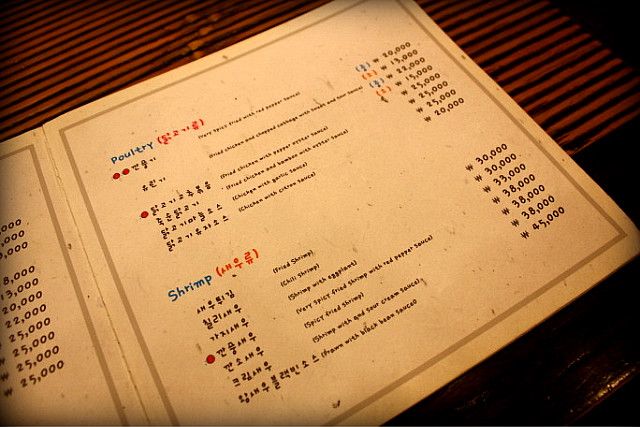 000
000
000
8,000
13,000
20,000
22,000
₩ 25,000
₩ 25,000
₩ 25,000
₩ 25,000
Poultry (닭고기류)
깐풍기 (Very Spicy fried with red pepper Sauce) ₩ 20,000
₩ 13,000
유린기 (Fried chicken and chopped cabbage with Sweet and Sour Sauce) ₩ 22,000
₩ 15,000
닭고기고추볶음 (Fried chicken with pepper oyster Sauce) ₩ 25,000
죽순닭고기 (Fried chicken and bamboo with oyster Sauce) ₩ 25,000
닭고기마늘소스 (Chicken with garlic Sauce) ₩ 25,000
닭고기유자소스 (Chicken with citron Sauce) ₩ 20,000
Shrimp (새우류)
새우튀김 (Fried Shrimp) ₩ 30,000
칠리새우 (Chili Shrimp) ₩ 30,000
가지새우 (Shrimp with eggplant) ₩ 33,000
깐풍새우 (Very Spicy fried Shrimp with red pepper Sauce) ₩ 38,000
깐소새우 (Spicy fried Shrimp) ₩ 38,000
크림새우 (Shrimp with and Sour cream Sauce) ₩ 38,000
왕새우블랙빈소스 (Prawn with black bean Sauce) ₩ 45,000